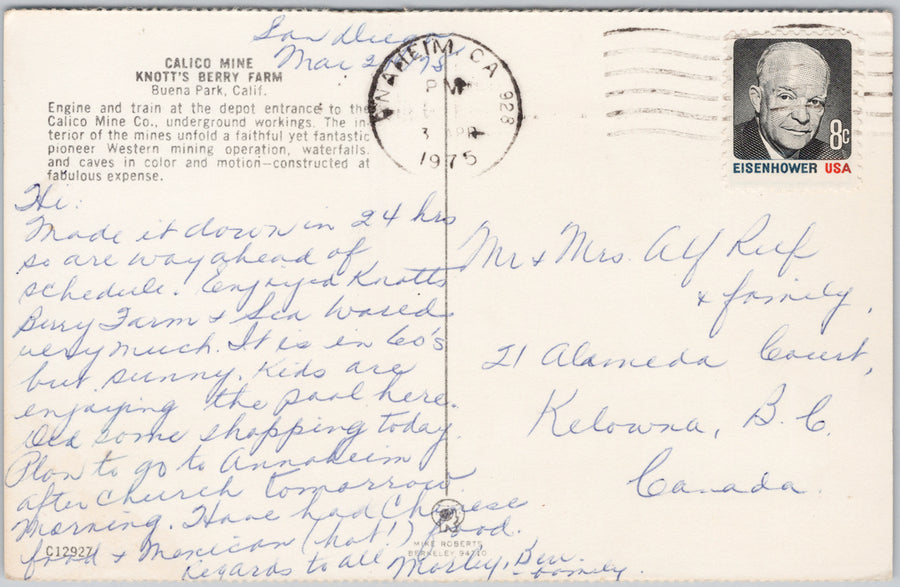 San Diego
Mar 2 75
CALICO MINE
KNOTT'S BERRY FARM
Buena Park, Calif.
Engine and train at the depot entrance to the
Calico Mine Co., underground workings. The in-
terior of the mines unfold a faithful yet fantastic
pioneer Western mining operation, waterfalls,
and caves in color and motion—constructed at
fabulous expense.
ANAHEIM, CA 928
PM
3 APR
1975
8c
EISENHOWER USA
Hi:
Made it down in 24 hrs
so are way ahead of
schedule. Enjoyed Knotts
Berry Farm & Sea
very much. It is in 60's
but sunny. Kids are
enjoying the pool here.
Did some shopping today.
Plan to go to Annaheim
after church tomorrow
morning. Have had Chinese
food & Mexican (hot!) food.
Regards to all Morley, Bev.
& family.
Mr & Mrs. Alf Reif
& family,
21 Alameda Court,
Kelowna, B.C.
Canada.
C12927
MIKE ROBERTS
BERKELEY 94710